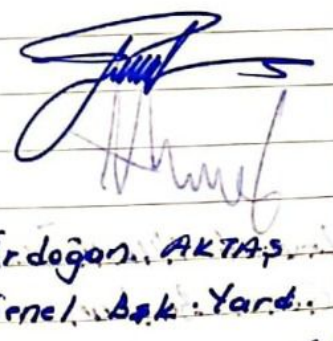 rdoğan AKTAŞ
enel Bşk. Yard.